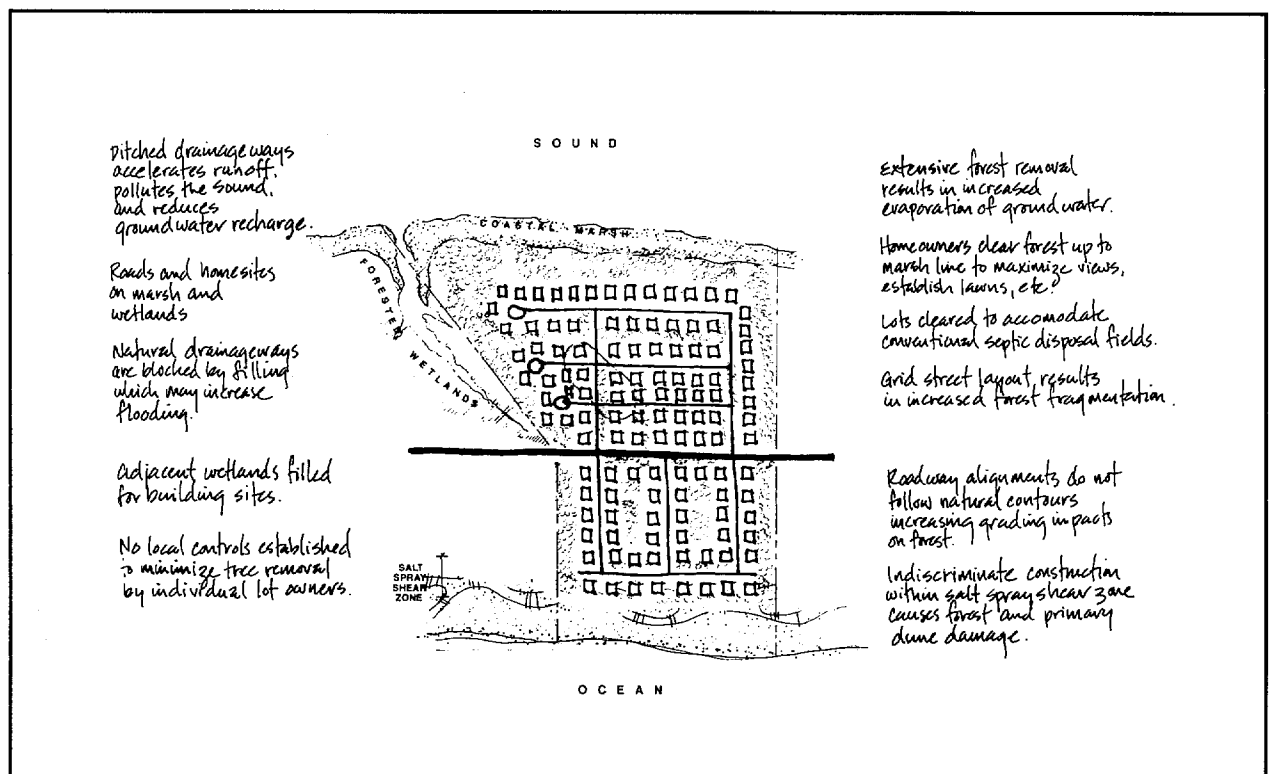 SOUND
Ditched drainageways
accelerates runoff,
pollutes the sound,
and reduces
groundwater recharge.
Roads and homesites
on marsh and
wetlands
Natural drainageways
are blocked by filling
which may increase
flooding.
Adjacent wetlands filled
for building sites.
No local controls established
to minimize tree removal
by individual lot owners.
COASTAL MARSH
FORESTED WETLANDS
SALT
SPRAY
SHEAR
ZONE
Extensive forest removal
results in increased
evaporation of groundwater.
Homeowners clear forest up to
marsh line to maximize views,
establish lawns, etc.
Lots cleared to accomodate
conventional septic disposal fields.
Grid street layout, results
in increased forest fragmentation.
Roadway alignments do not
follow natural contours
increasing grading impacts
on forest.
Indiscriminate construction
within salt spray shear zone
causes forest and primary
dune damage.
OCEAN